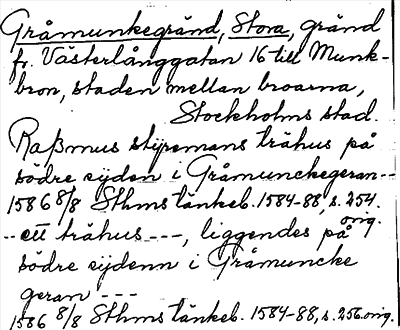 Gråmunkegränd, Stora, gränd
fr. Västerlånggatan 16 till Munk-
bron, staden mellan broarna,
Stockholms stad.
Raßmus stÿremans trähus på
södre sijden i Gråmunckegeran--
1586 8/8 Sthms tänkeb. 1584-88, s. 254.
orig.
-- ett trähus ---, liggendes på
södre sijdenn i Gråmuncke
geran ---
1586 8/8 Sthms tänkeb. 1584-88, s. 256 orig.